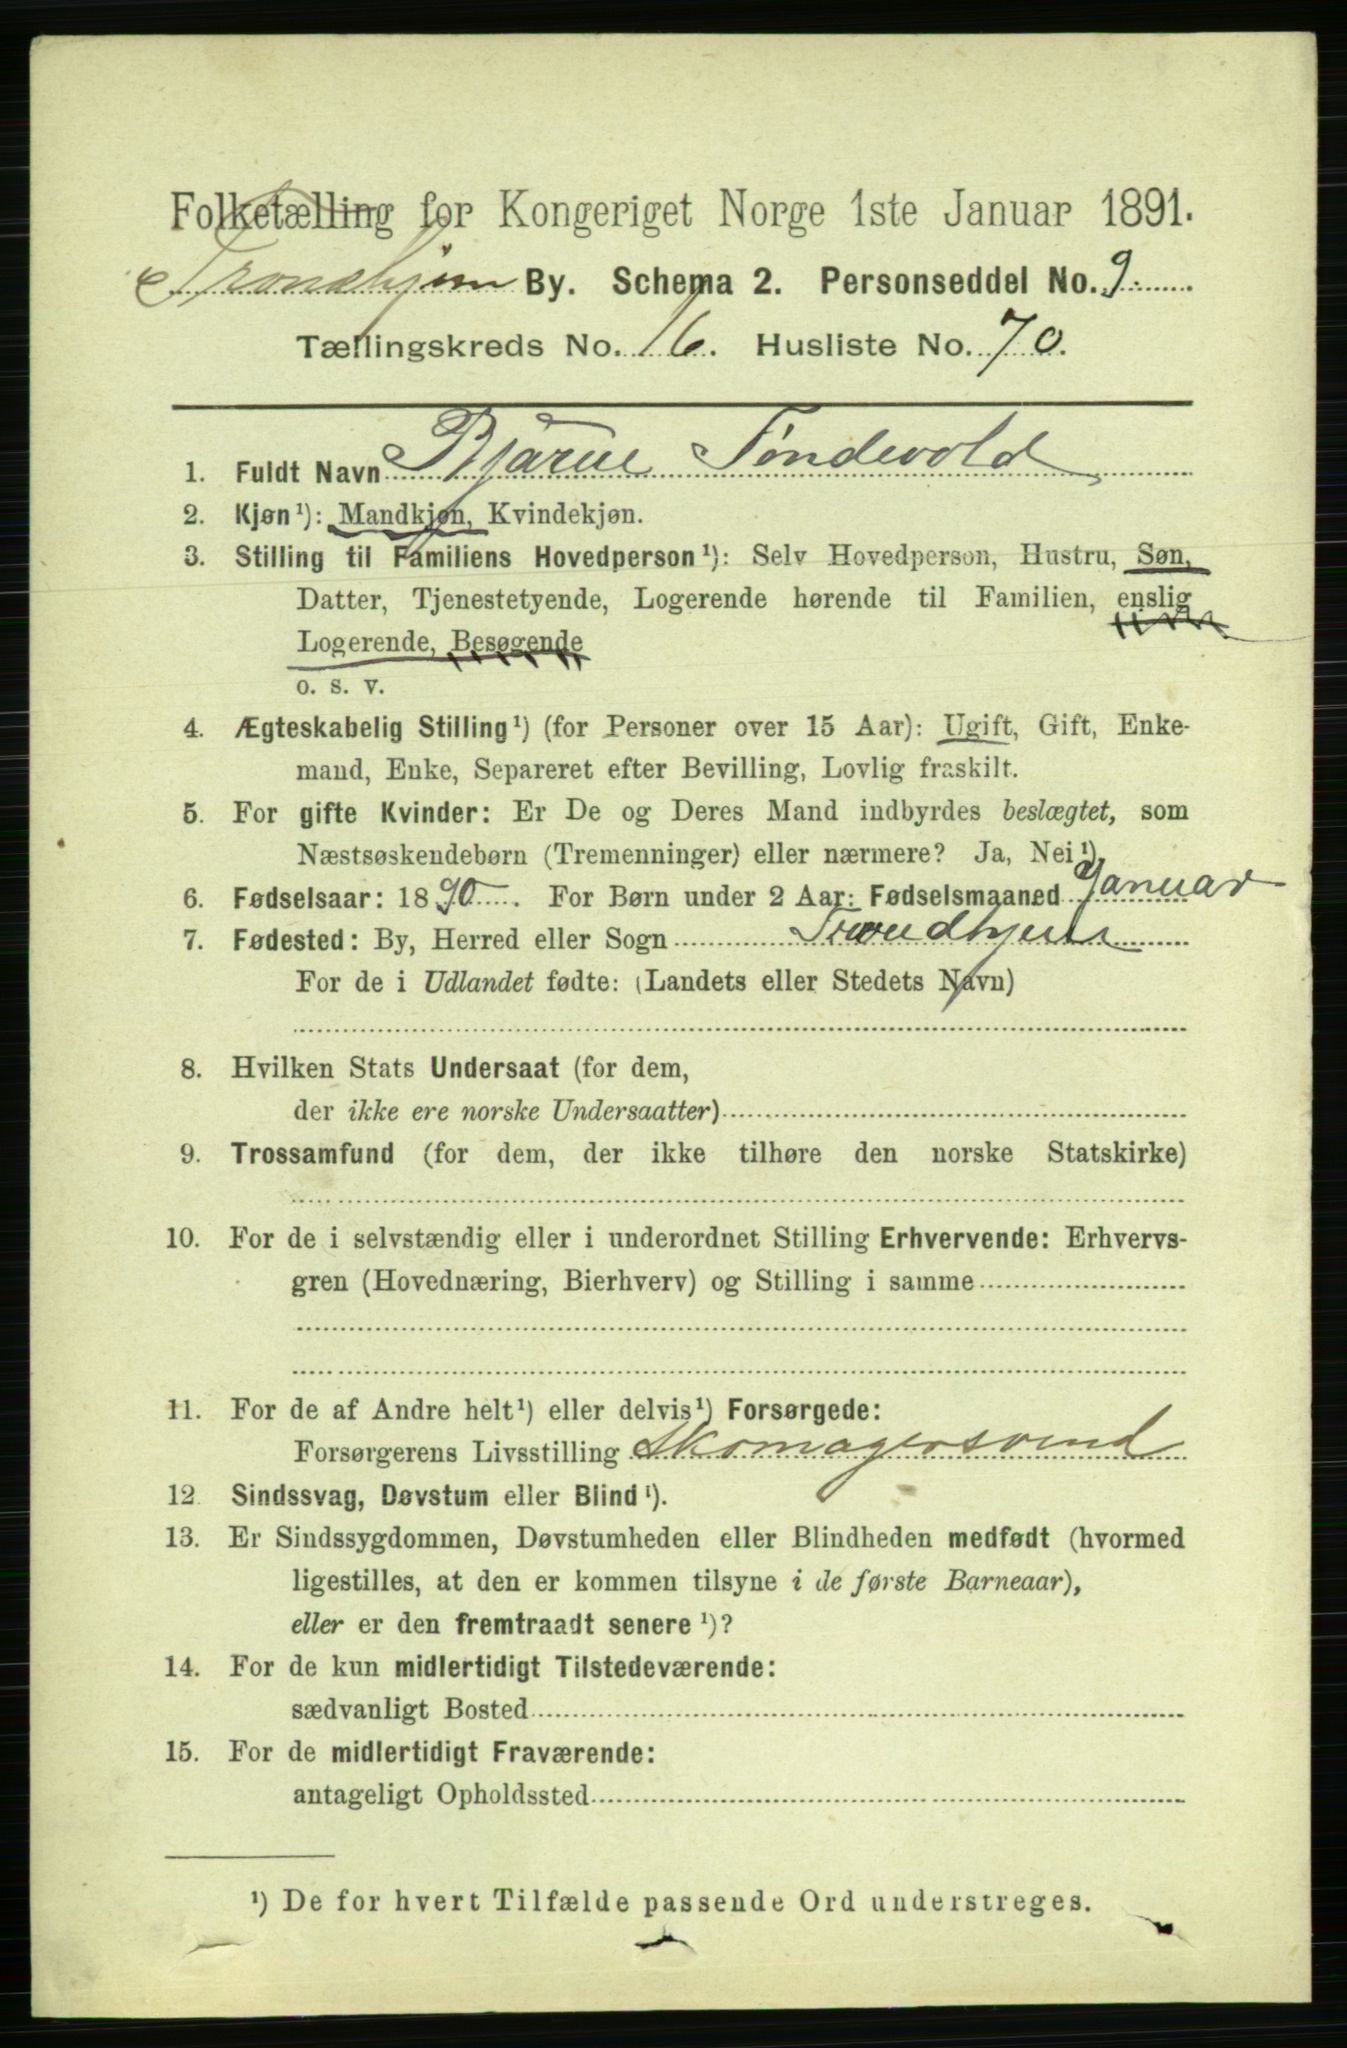 Folketælling for Kongeriget Norge 1ste Januar 1891.
Trondhjem By. Schema 2. Personseddel No. 9
Tællingskreds No. 16. Husliste No. 70.
1. Fuldt Navn Bjarne Tøndevold
2. Kjøn¹): Mandkjøn, Kvindekjøn.
3. Stilling til Familiens Hovedperson¹): Selv Hovedperson, Hustru, Søn,
Datter, Tjenestetyende, Logerende hørende til Familien, enslig
Logerende, Besøgende
o. s. v.
4. Ægteskabelig Stilling¹) (for Personer over 15 Aar): Ugift, Gift, Enke-
mand, Enke, Separeret efter Bevilling, Lovlig fraskilt.
5. For gifte Kvinder: Er De og Deres Mand indbyrdes beslægtet, som
Næstsøskendebørn (Tremenninger) eller nærmere? Ja, Nei¹).
6. Fødselsaar: 1890. For Børn under 2 Aar: Fødselsmaaned Januar
7. Fødested: By, Herred eller Sogn Trondhjem
For de i Udlandet fødte: (Landets eller Stedets Navn)
8. Hvilken Stats Undersaat (for dem,
der ikke ere norske Undersaatter)
9. Trossamfund (for dem, der ikke tilhøre den norske Statskirke)
10. For de i selvstændig eller i underordnet Stilling Erhvervende: Erhvervs-
gren (Hovednæring, Bierhverv) og Stilling i samme
11. For de af Andre helt¹) eller delvis¹) Forsørgede:
Forsørgerens Livsstilling Skomagersvend
12 Sindssvag, Døvstum eller Blind¹).
13. Er Sindssygdommen, Døvstumheden eller Blindheden medfødt (hvormed
ligestilles, at den er kommen tilsyne i de første Barneaar),
eller er den fremtraadt senere¹)?
14. For de kun midlertidigt Tilstedeværende:
sædvanligt Bosted
15. For de midlertidigt Fraværende:
antageligt Opholdssted
¹) De for hvert Tilfælde passende Ord understreges.